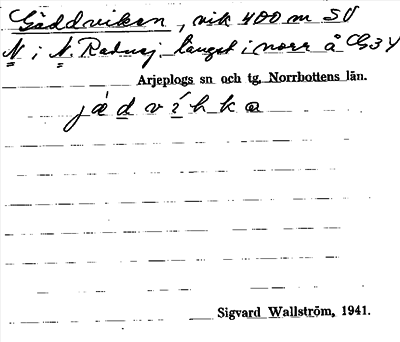 Gäddviken, vik 400 m SV
N i N. Radnej. längst i norr å G3Y
Arjeplogs sn och tg, Norrbottens län.
jädvíhka
Sigvard Wallström, 1941.